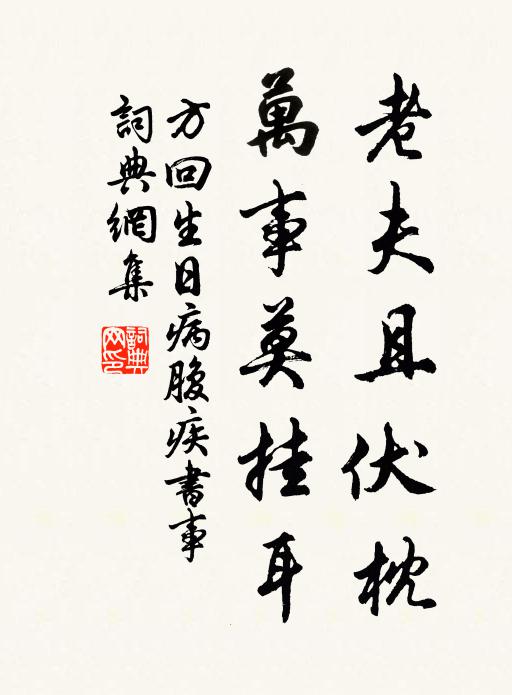 老夫且伏枕
萬事莫挂耳
方回生日病腹疾書事
詞典網集
詞典網印